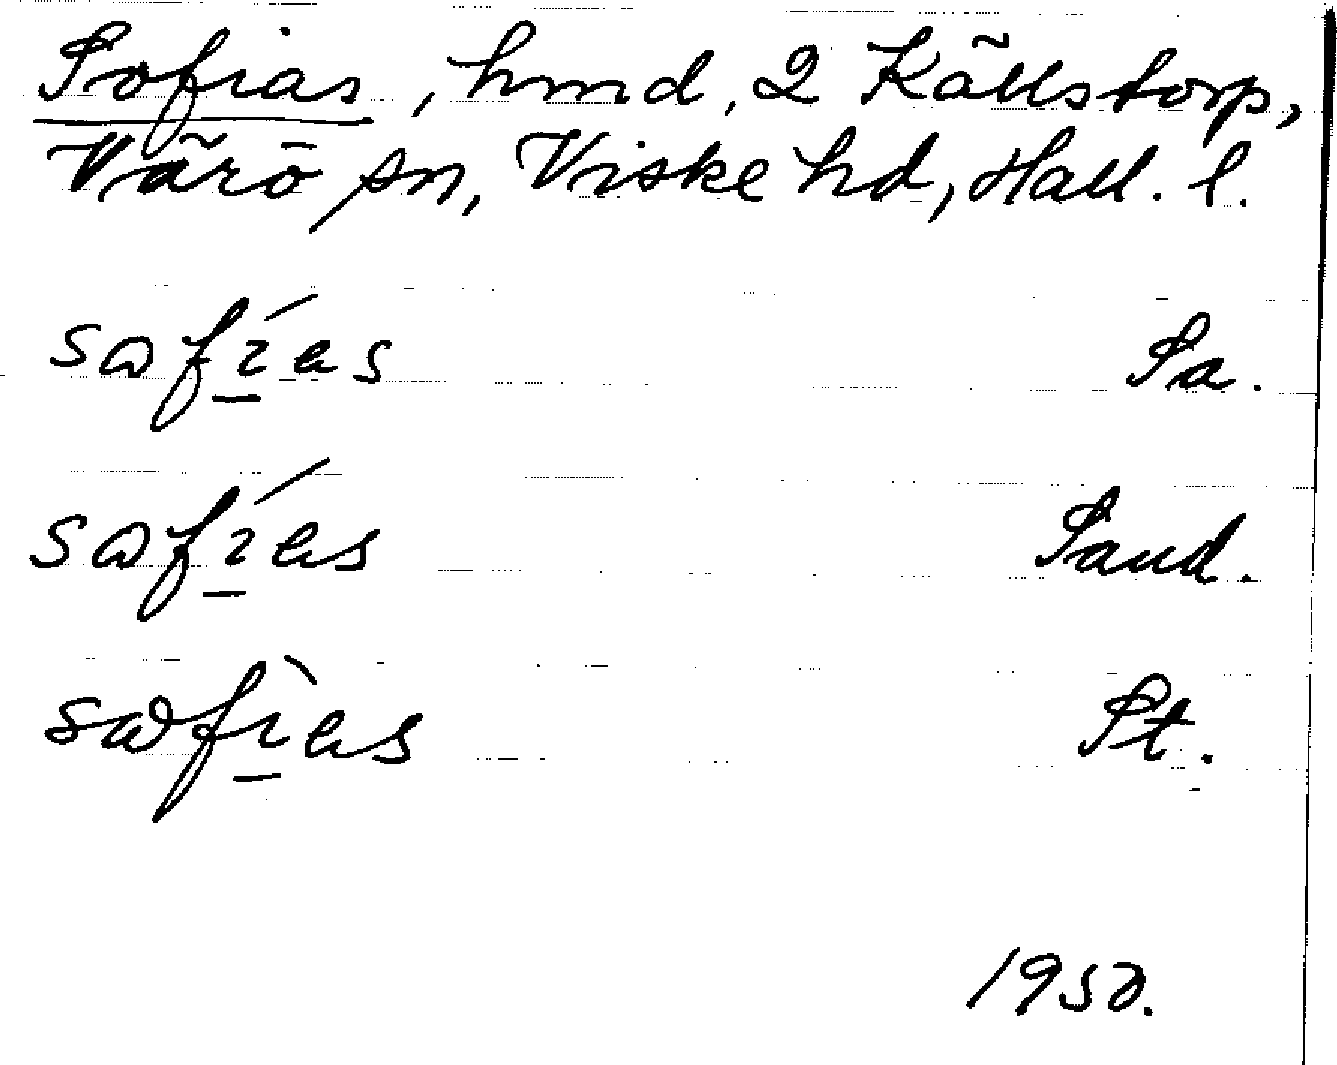 Sofias, hmd, 2 Källstorp,
Värö sn, Viske hd, Hall. l.
sɷfí̱as Sa.
sɷfí̱as Sand.
sɷfì̱as St.
1950.